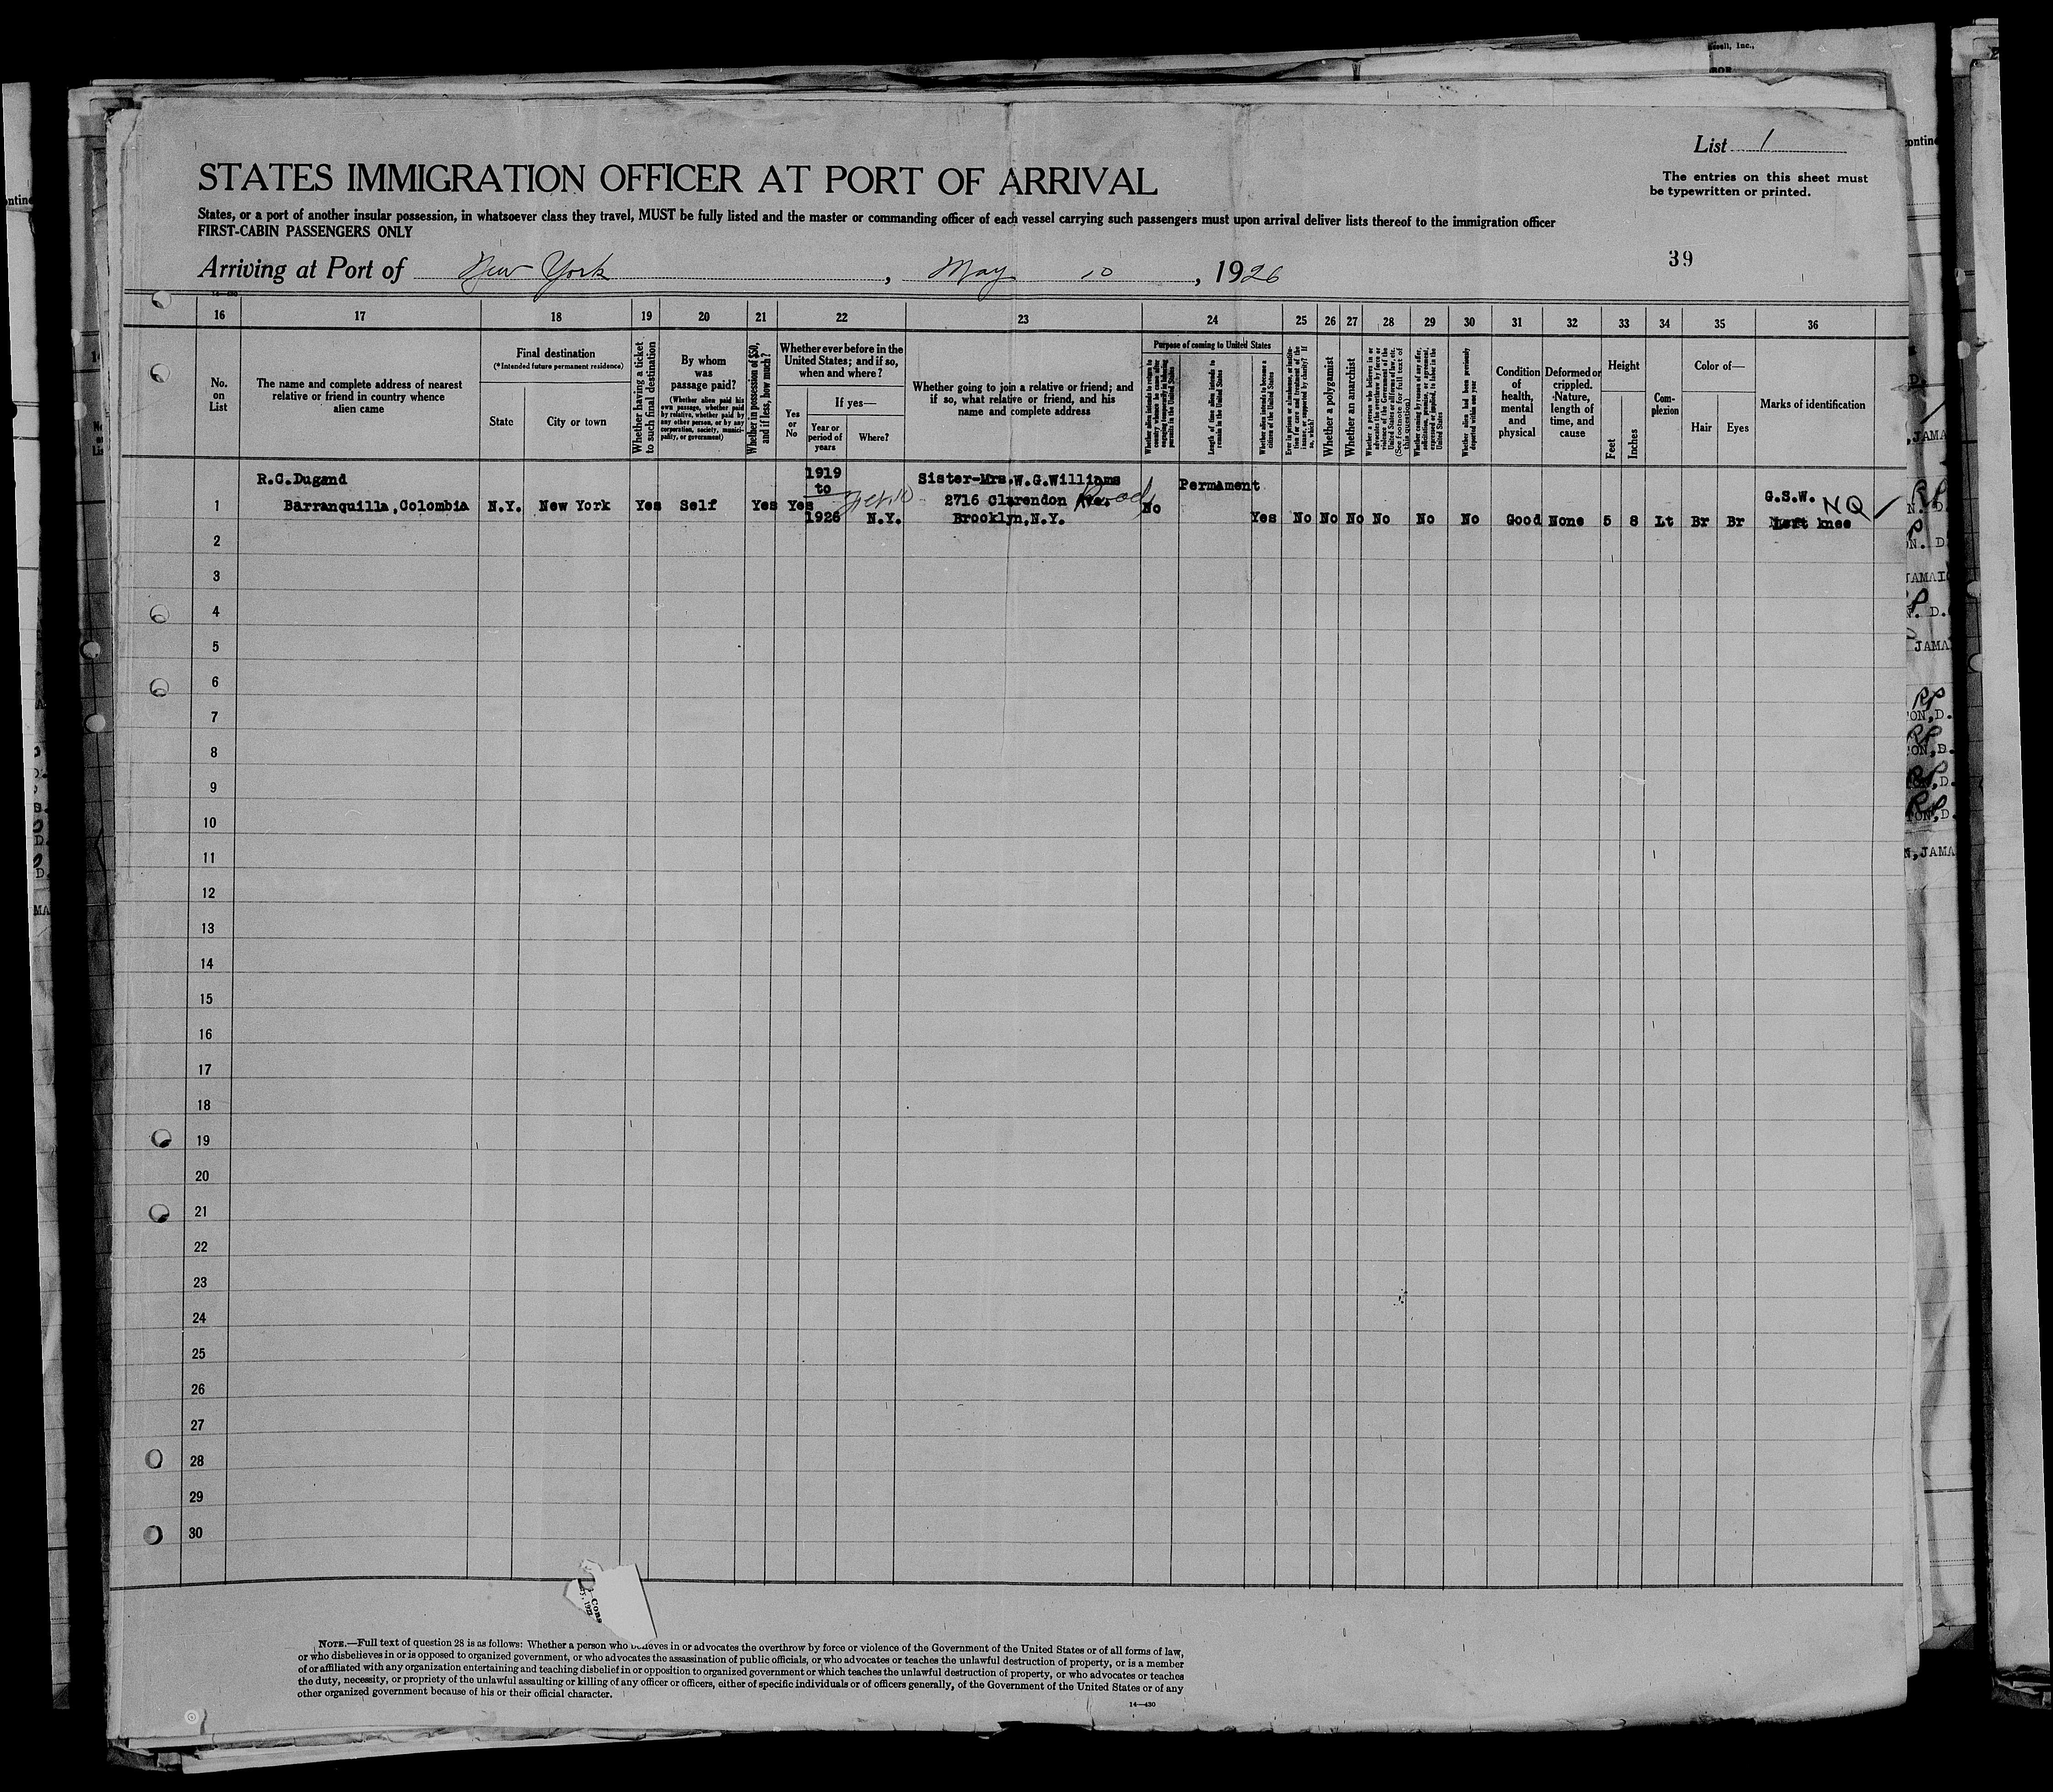 List 1
The entries on this sheet must
be typewritten or printed.
STATES IMMIGRATION OFFICER AT PORT OF ARRIVAL
States, or a port of another insular possession, in whatsoever class they travel, MUST be fully listed and the master or commanding officer of each vessel carrying such passengers must upon arrival deliver lists thereof to the immigration officer
FIRST-CABIN PASSENGERS ONLY
39
Arriving at Port of New York, May 10, 1926
16 17 18 19 20 21 22 23 24 25 26 27 28 29 30 31 32 33 34 35 36
No. on List
The name and complete address of nearest
relative or friend in country whence
alien came
Final destination
(*Intended future permanent residence)
State
City or town
Whether having a ticket
to such final destination
By whom
was
passage paid?
(Whether alien paid his
own passage, whether paid
by relative, whether paid by
any other person, or by any
corporation, society, munici-
pality, or government)
Whether in possession of $50,
and if less, how much?
Whether ever before in the
United States; and if so,
when and where?
Yes
or
No
If yes—
Year or
period of
years
Where?
Whether going to join a relative or friend; and
if so, what relative or friend, and his
name and complete address
Purpose of coming to United States
Length of time alien intends to
remain in the United States
Whether alien intends to become a
citizen of the United States
Whether a polygamist
Whether an anarchist
Whether alien had been previously
deported within one year
Condition
of
health,
mental
and
physical
Deformed or
crippled.
Nature,
length of
time, and
cause
Height
Feet
Inches
Com-
plexion
Color of—
Hair
Eyes
Marks of identification
R.C.Dugand
Barranquilla,Colombia
N.Y.
New York
Yes
Self
Yes
Yes
1919
to
1926
N.Y.
Sister-Mrs.W.G.Williams
2716 Clarendon Ave. Road
Brooklyn,N.Y.
No
Permament
Yes
No
No
No
No
No
No
Good
None
5
8
Lt
Br
Br
G.S.W. NQ
Left knee
1
2
3
4
5
6
7
8
9
10
11
12
13
14
15
16
17
18
19
20
21
22
23
24
25
26
27
28
29
30
NOTE.—Full text of question 28 is as follows: Whether a person who believes in or advocates the overthrow by force or violence of the Government of the United States or of all forms of law,
or who disbelieves in or is opposed to organized government, or who advocates the assassination of public officials, or who advocates or teaches the unlawful destruction of property, or is a member
of or affiliated with any organization entertaining and teaching disbelief in or opposition to organized government or which teaches the unlawful destruction of property, or who advocates or teaches
the duty, necessity, or propriety of the unlawful assaulting or killing of any officer or officers, either of specific individuals or of officers generally, of the Government of the United States or of any
other organized government because of his or their official character.
14—430